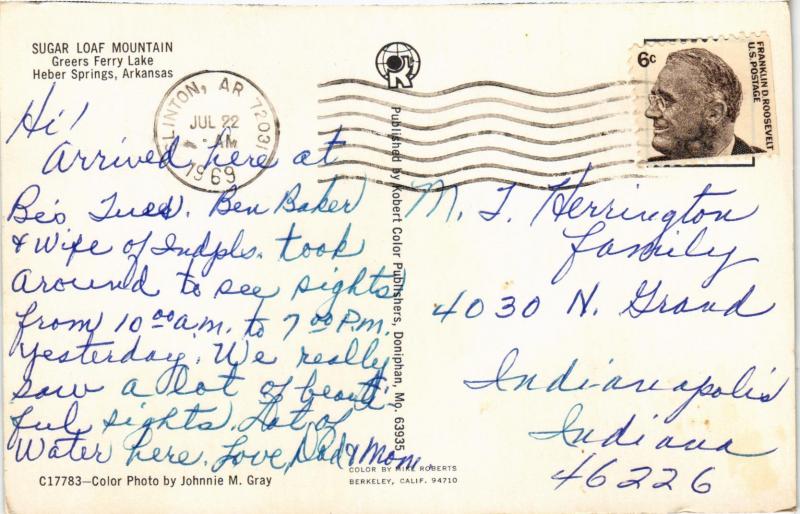 SUGAR LOAF MOUNTAIN
Greers Ferry Lake
Heber Springs, Arkansas
CLINTON, AR 72031
JUL 22
AM
1969
6c
FRANKLIN D. ROOSEVELT
U.S. POSTAGE
Hi!
Arrived here at
Be's Tues. Ben Baker
& Wife of Indpls. took
around to see sights
from 10 00 a.m. to 7 00 P.m.
yesterday. We really
saw a lot of beauti-
ful sights. Lot of
Water here. Love, Dad & Mom.
Published by Kobert Color Publishers, Doniphan, Mo. 63935
M. T. Herrington
family
4030 N. Grand
Indianapolis
Indiana
46226
COLOR BY MIKE ROBERTS
BERKELEY, CALIF. 94710
C17783—Color Photo by Johnnie M. Gray